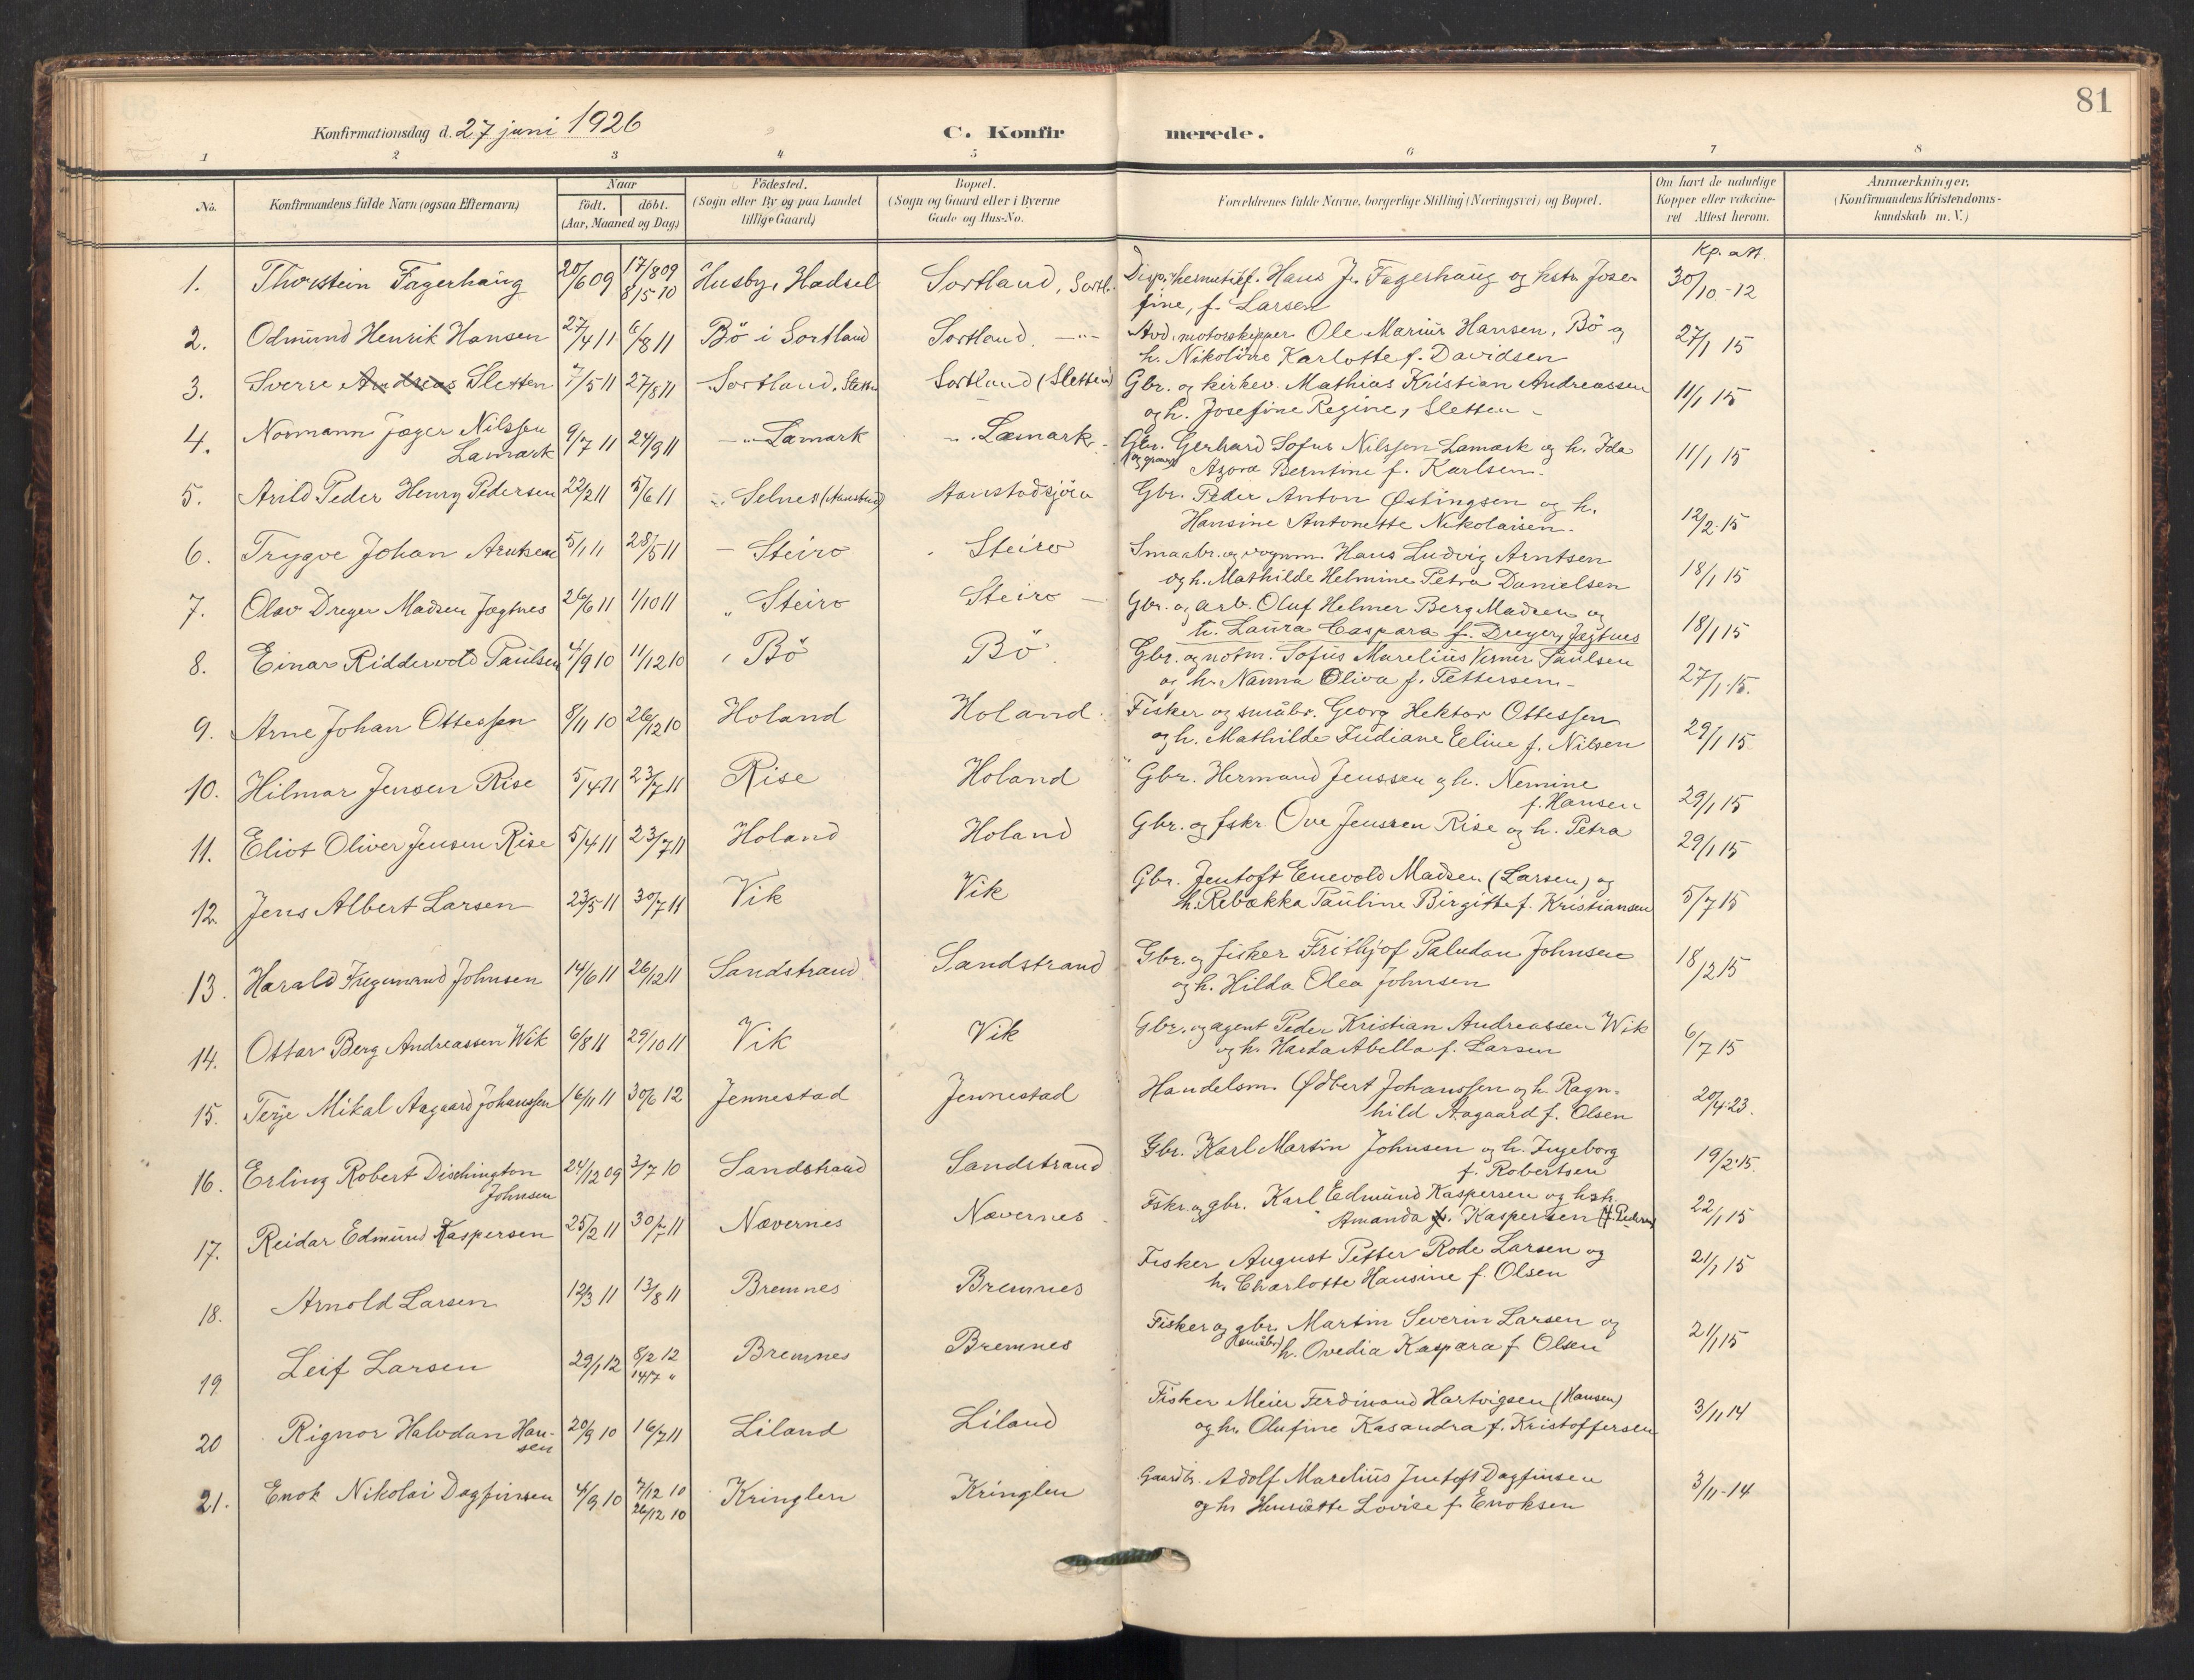 81
Konfirmationsdag d. 27 juni 1926 C. Konfir merede.
1 2 3 4 5 6 7 8
No. Konfirmandens fulde Navn (ogsaa Efternavn) Naar födt. döbt. (Aar, Maaned og Dag) Födested. (Sogn eller By og paa Landet tillige Gaard) Bopæl. (Sogn og Gaard eller i Byerne Gade og Hus-No. Forældrenes fulde Navne, borgerlige Stilling (Næringsvei) og Bopæl. Om havt de naturlige Kopper eller vakcineret Attest herom. Anmærkninger. (Konfirmandens Kristendomskundskab m. V.)
Kp. att.
1. Thorstein Fagerhaug 20/6 09 17/8 09 Husby, Hadsel Sortland, Sortl. Hans J. Fagerhaug og hstr. Jose- 30/10-12
8/5 10 fine, f. Larsen
2. Odmund Henrik Hansen 27/4 11 6/8 11 Bö i Sortland Sortland. -"- motorskipper Ole Marius Hansen, Bö og 27/1 15
h. Nikoline Karlotte f. Davidsen
3. Sverre Andreas Sletten 7/5 11 27/8 11 Sortland, Sletten Sortland (Sletten) Gbr. og kirkev. Mathias Kristian Andreassen 11/1 15
og h. Josefine Regine, Sletten -
4. Normann Jæger Nilssen 9/7 11 24/9 11 -"- Lamark -"- Lamark Gbr. Gerhard Sofus Nilssen Lamark og h. Ida 11/1 15
Lamark Azora Berntine f. Karlsen.
5. Arild Peder Henry Pedersen 22/2 11 5/6 11 " Selnes Maustadsjöen Gbr. Peder Anton Østingsen og h. 12/2-15
Hansine Antonette Nikolaisen.
6. Trygve Johan Arntsen 5/1 11 28/5 11 - Steiro Steiro Smaabr. og vognm. Hans Ludvig Arntsen 18/1 15
og h. Mathilde Helmine Petra Danielsen
7. Olav Dreyer Madsen Jægtnes 26/6 11 1/10 11 " Steiro Steiro - Gbr. og arb. Oluf Helmer Berg Madsen og 18/1 15
h. Laura Caspara f. Dreyer, Jægtnes
8. Einar Ridderwold Paulsen 4/9 10 11/12 10 , Bö Bö Gbr. og notm. Sofus Marelius Verner Paulsen 27/1-15.
og h. Nanna Oliva f. Pettersen -
9. Arne Johan Ottessen 8/11 10 26/12 10 Holand Holand. Fisker og småbr. Georg Hektor Ottessen 29/1 15
og h. Mathilde Indiane Eline f. Nilsen
10. Hilmar Jensen Rise 5/4 11 23/7 11 Rise Holand Gbr. Hermand Jenssen og h. Nemine 29/1 15
f. Hansen
11. Eliot Oliver Jensen Rise 5/4 11 23/7 11 Holand Holand Gbr. og fskr. Ove Jenssen Rise og h. Petra 29/1 15
12. Jens Albert Larsen 23/5 11 30/7 11 Vik Vik Gbr. Jentoft Enevold Madsen (Larsen) og 5/7 15
h. Rebækka Pauline Birgitte f. Kristiansen
13. Harald Johnsen 14/6 11 26/12 11 Sandstrand Sandstrand Gbr. og fisker Frithjof Paludan Johnsen 18/2 15
og h. Hilda Olea Johnsen
14. Ottar Berg Andreassen Wik 6/8 11 29/10 11 Vik Vik Gbr. og agent Peder Kristian Andreassen Wik 6/7 15
og h. Abella f. Larsen
15. Terje Mikal Aagaard Johanssen 16/11 11 30/6 12 Jennestad Jennestad Handelsm. Ødbert Johanssen og h. Ragn- 20/4-23.
hild Aagaard f. Olsen
16. Erling Robert Dischington 24/12 09 3/7 10 Sandstrand Sandstrand Gbr. Karl Martin Johnsen og h. Ingeborg 19/2-15.
Johnsen f. Robertsen
17. Reidar Edmund Kaspersen 25/2 11 30/7 11 Nævernes Nævernes Fskr. og gbr. Karl Edmund Kaspersen og hstr. 22/1 15
Amanda f. Kaspersen (f. Pedersen)
18. Arnold Larsen 12/3 11 13/8 11 Bremnes Bremnes Fisker August Petter Rode Larsen og 21/1 15
h. Charlotte Hansine f. Olsen
19 Leif Larsen 29/1 12 8/2 12 Bremnes Bremnes Fisker og gbr. Martin Severin Larsen og 21/1 15
14/7 " (småbr) h. Ovedia Kaspara f. Olsen
20 Rignor Halvdan Han- 20/9 10 16/7 11 Liland Liland Fisker Meier Ferdinand Hartvigsen (Hansen) 3/11 14
sen og h. Olufine Kasandra f. Kristoffersen
21. Enok Nikolai Dagfinsen 4/9 10 7/12 10 Kringlen Kringlen Gaardbr. Adolf Marelius Jentoft Dagfinsen 3/11-14
26/12 10 og h. Henriette Lovise f. Enoksen